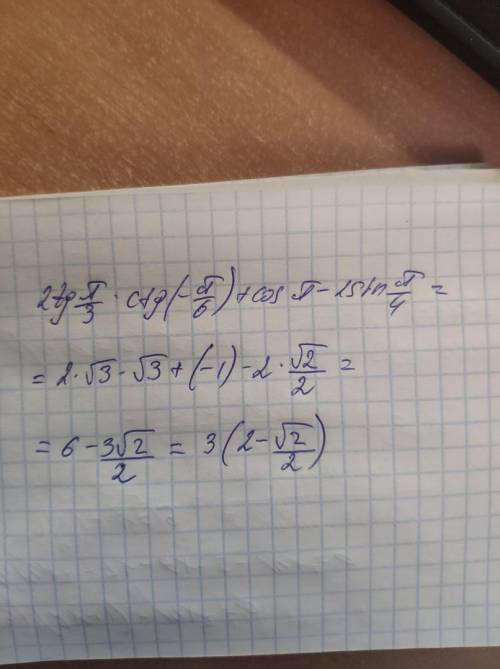 2tg π/3 · ctg(-π/6) + cos π - 2sin π/4 =
= 2 · √3 · √3 + (-1) - 2 · √2/2 =
= 6 - 3√2/2 = 3(2 - √2/2)